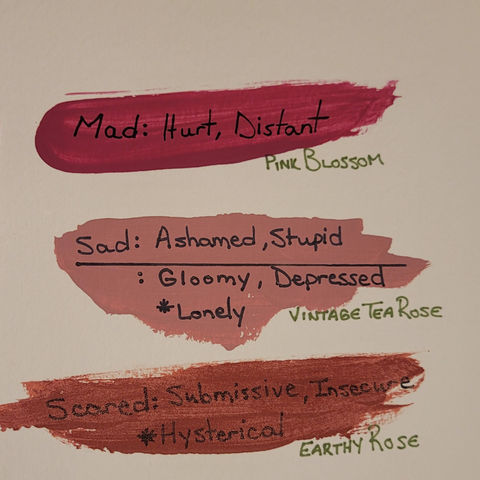 Mad: Hurt, Distant
PINK BLOSSOM
Sad: Ashamed, Stupid
: Gloomy, Depressed
*Lonely
VINTAGE TEA ROSE
Scared: Submissive, Insecure
*Hysterical
EARTHY ROSE